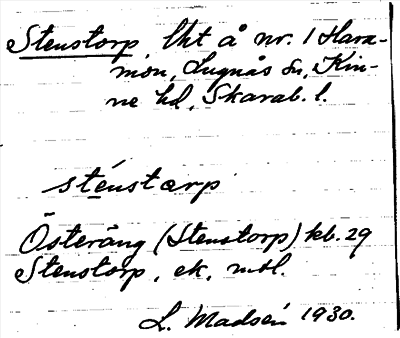 Stenstorp, lht å nr. 1 Hara-
mon, Lugnås sn, Kin-
ne hd, Skarab. l.
sténstorp
Österäng (Stenstorp) kb. 29
Stenstorp, ek, mtl.
L. Madsén 1930.